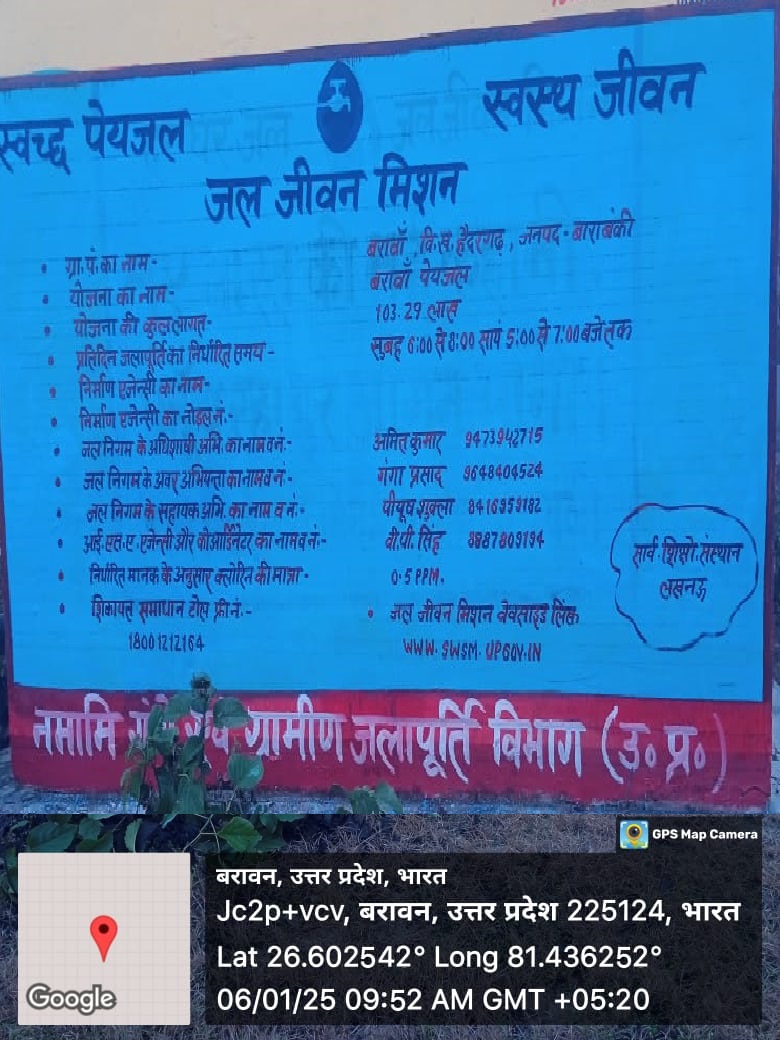 स्वच्छ पेयजल स्वस्थ जीवन
जल जीवन मिशन
• ग्रा.पं.का नाम- बरावाँ, वि.ख. हैदरगढ़, जनपद-बाराबंकी
• योजना का नाम- बरावाँ पेयजल
• योजना की कुल लागत- 103.29 लाख
• प्रतिदिन जलापूर्ति का निर्धारित समय- सुबह 6:00 से 8:00 सायं 5:00 से 7:00 बजे तक
• निर्माण एजेन्सी का नाम-
• निर्माण एजेन्सी का मोइल नं.-
• जल निगम के अधिशाषी अभि. का नाम व नं.- अमित कुमार 9473942715
• जल निगम के अवर अभियन्ता का नाम व नं- गंगा प्रसाद 9648404524
• जल निगम के सहायक अभि. का नाम व नं- पीयूष शुक्ला 8416959182
• आई.एस.ए. एजेन्सी और कोआर्डिनेटर का नाम व नं:- वी.पी. सिंह 3887809194
• निर्धारित मानक के अनुसार क्लोरिन की मात्रा- 0.5 PPM.
• शिकायत समाधान टोल फ्री नं.- • जल जीवन मिशन वेवसाइड लिंक
18001212164 WWW.SWSM.UPGOV.IN
सार्व. शिक्षो. संस्थान
लखनऊ
नमामि गंगे एवं ग्रामीण जलापूर्ति विभाग (उ० प्र०)
GPS Map Camera
बरावन, उत्तर प्रदेश, भारत
Jc2p+vcv, बरावन, उत्तर प्रदेश 225124, भारत
Lat 26.602542° Long 81.436252°
06/01/25 09:52 AM GMT +05:20
Google